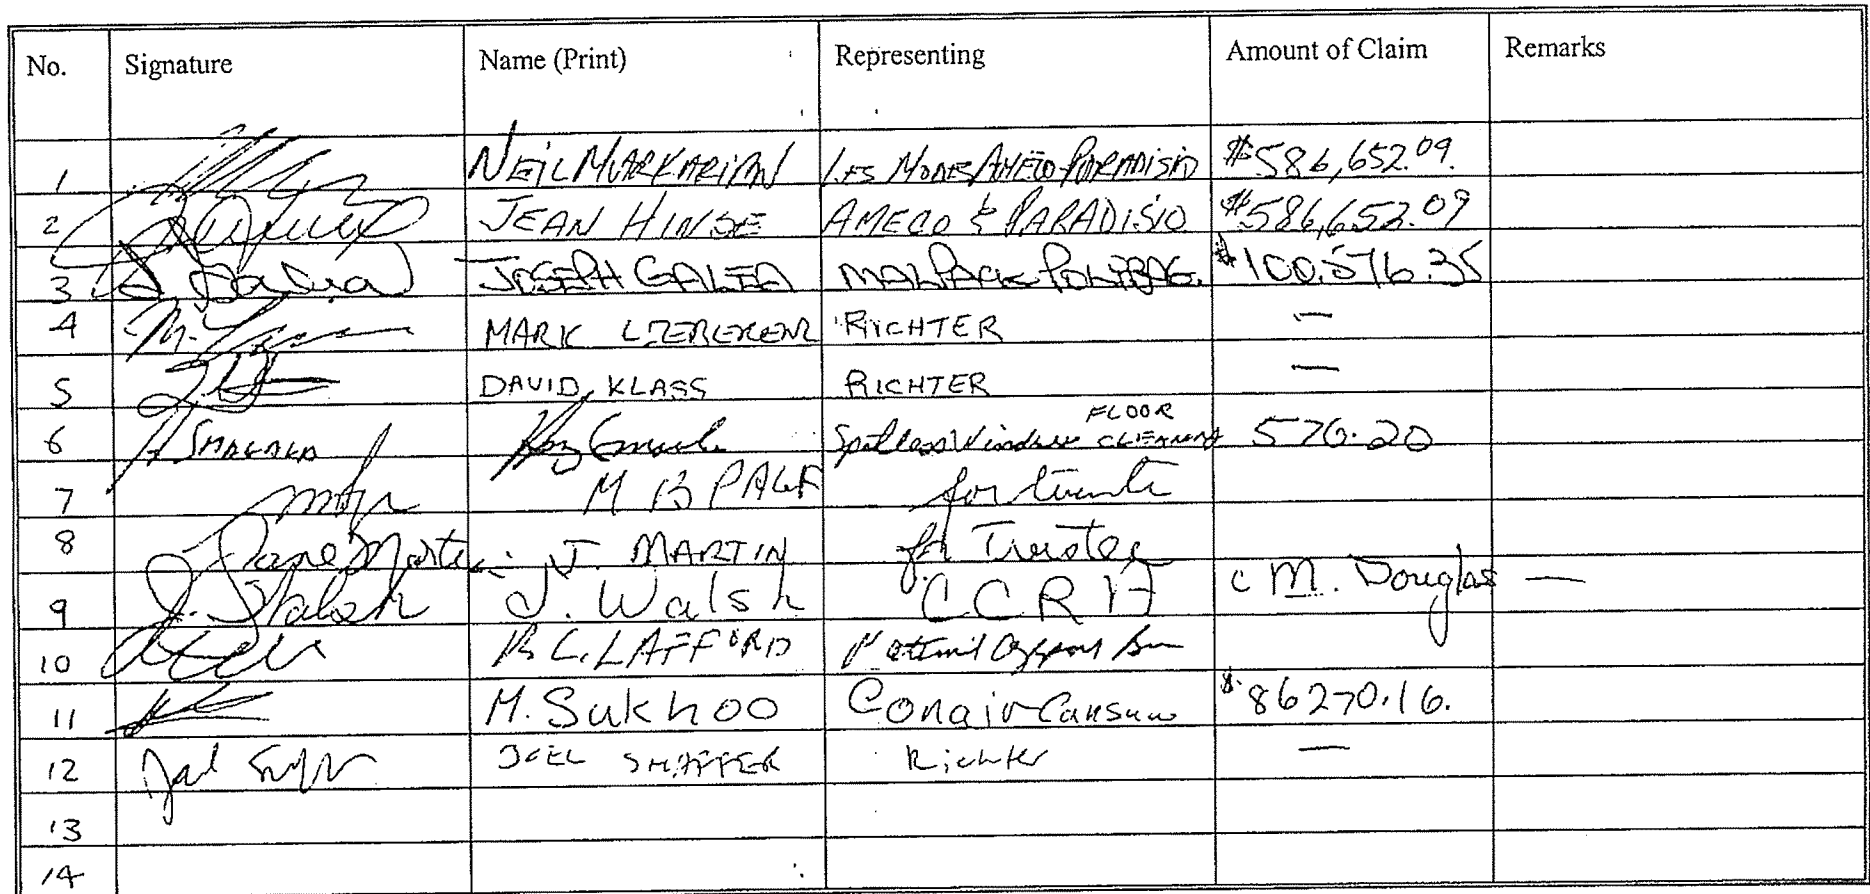 No. Signature Name (Print) Representing Amount of Claim Remarks
1 NEIL MARKARIAN LES MODES AMECO PARADISIO $586,652.09.
2 JEAN HINSE AMECO & PARADISIO $586,652.09
3 J Galea JOSEPH GALEA MALPACK POLYBAG. $100,576.35
4 MARK RICHTER —
5 DAVID KLASS RICHTER —
FLOOR
6 Spotless Window CLEANING 570.20
7 M B PAGE for
8 Jane Martin J. MARTIN for Trustee
9 J. Walsh J. Walsh CCRA c M. Douglas —
10 R C. LAFFORD
11 M. Sukhoo Conair $86270.16.
12 JOEL SHAFFER Richter —
13
14